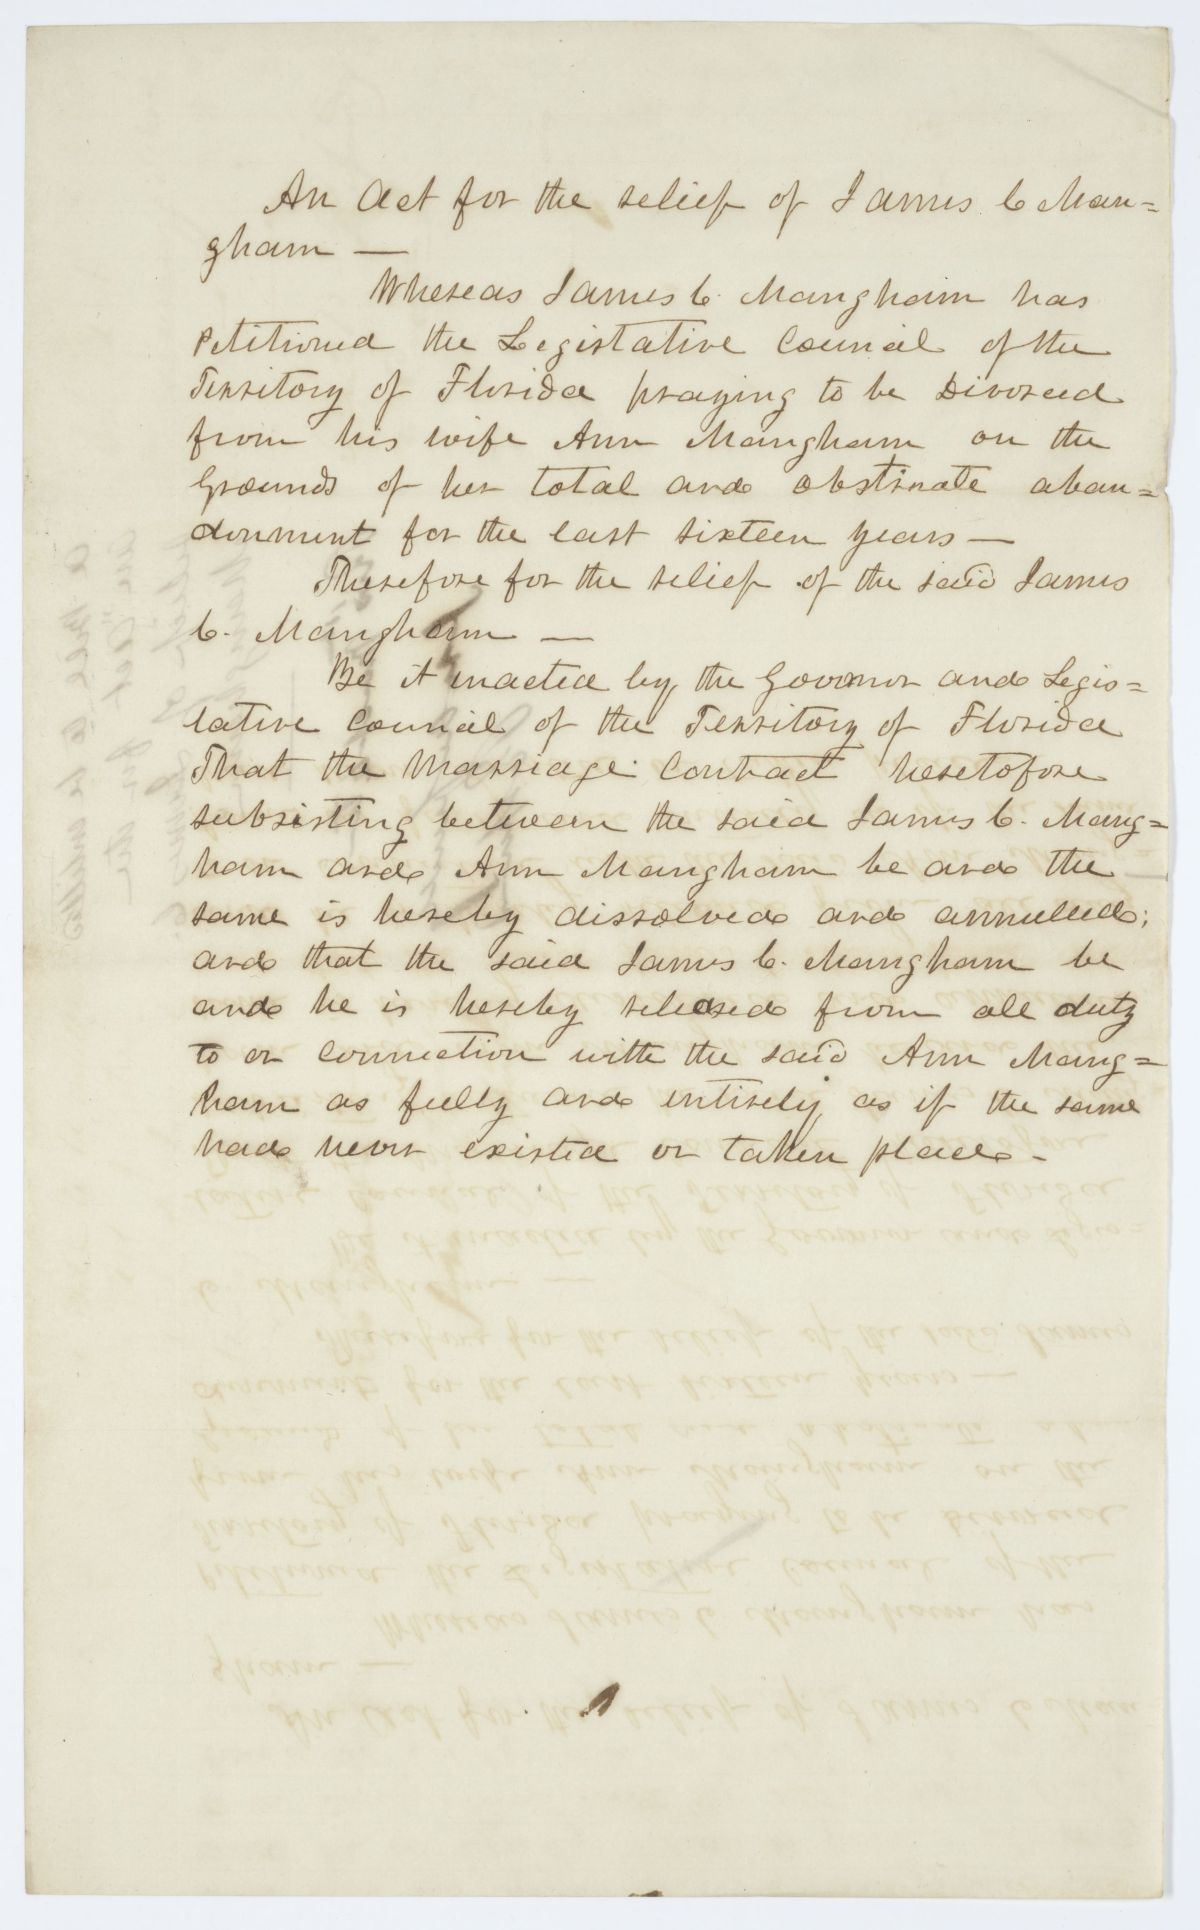 An Act for the relief of James C Man=
gham —
Whereas James C. Mangham has
Petitioned the Legistative Council of the
Territory of Florida praying to be Divorced
from his wife Ann Mangham on the
Grounds of her total and obstinate aban=
donment for the last sixteen years —
Therefore for the relief of the said James
C. Mangham —
Be it enacted by the Governor and Legis=
lative Council of the Territory of Florida
That the Marriage Contract heretofore
subsisting between the said James C. Mang=
ham and Ann Mangham be and the
same is hereby dissolved and annulled;
and that the said James C. Mangham be
and he is hereby released from all duty
to or connection with the said Ann Mang=
ham as fully and entirely as if the same
had never existed or taken place.